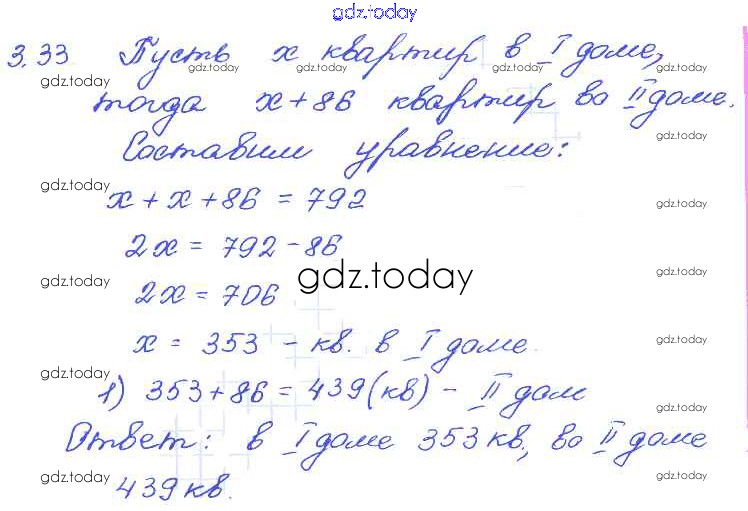 gdz.today
3.33 Пусть x квартир в I доме,
gdz.today gdz.today gdz.today gdz.today gdz.today
тогда x + 86 квартир во II доме.
gdz.today
Составим уравнение:
gdz.today gdz.today
x + x + 86 = 792
2x = 792 - 86
gdz.today gdz.today gdz.today
2x = 706
x = 353 - кв. в I доме.
gdz.today
gdz.today
1) 353 + 86 = 439 (кв) - II дом
gdz.today
Ответ: в I доме 353 кв, во II доме
gdz.today gdz.today
439 кв.